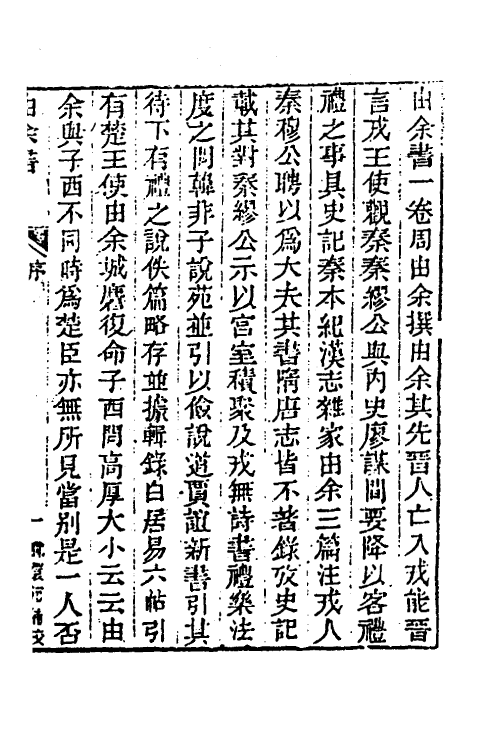 由余書一卷周由余撰由余其先晉人亡入戎能晉
言戎王使觀秦秦繆公與內史廖謀間要降以客禮
禮之事具史記秦本紀漢志雜家由余三篇注戎人
秦穆公聘以爲大夫其書隋唐志皆不著錄攷史記
載其對秦繆公示以宮室積聚及戎無詩書禮樂法
度之問韓非子說苑並引以儉說道賈誼新書引其
待下有禮之說佚篇略存並據輯錄白居易六帖引
有楚王使由余城麐復命子西問高厚大小云云由
余與子西不同時爲楚臣亦無所見當別是一人否
由余書
序
一